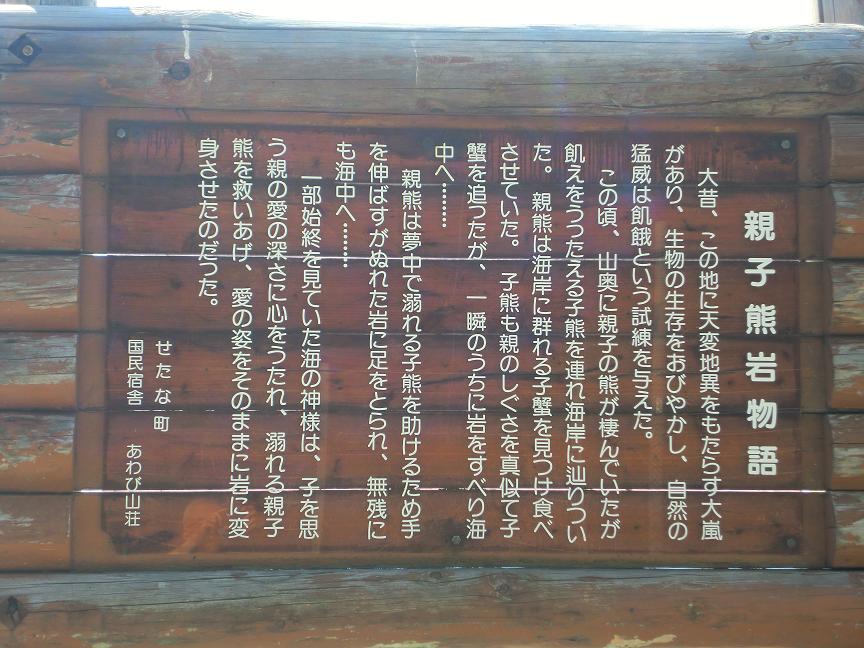 親子熊岩物語
大昔、この地に天変地異をもたらす大嵐
があり、生物の生存をおびやかし、自然の
猛威は飢餓という試練を与えた。
この頃、山奥に親子の熊が棲んでいたが
飢えをうったえる子熊を連れ海岸に辿りつい
た。親熊は海岸に群れる子蟹を見つけ食べ
させていた。子熊も親のしぐさを真似て子
蟹を追ったが、一瞬のうちに岩をすべり海
中へ………
親熊は夢中で溺れる子熊を助けるため手
を伸ばすがぬれた岩に足をとられ、無残に
も海中へ………
一部始終を見ていた海の神様は、子を思
う親の愛の深さに心をうたれ、溺れる親子
熊を救いあげ、愛の姿をそのままに岩に変
身させたのだった。
せたな町
国民宿舎 あわび山荘